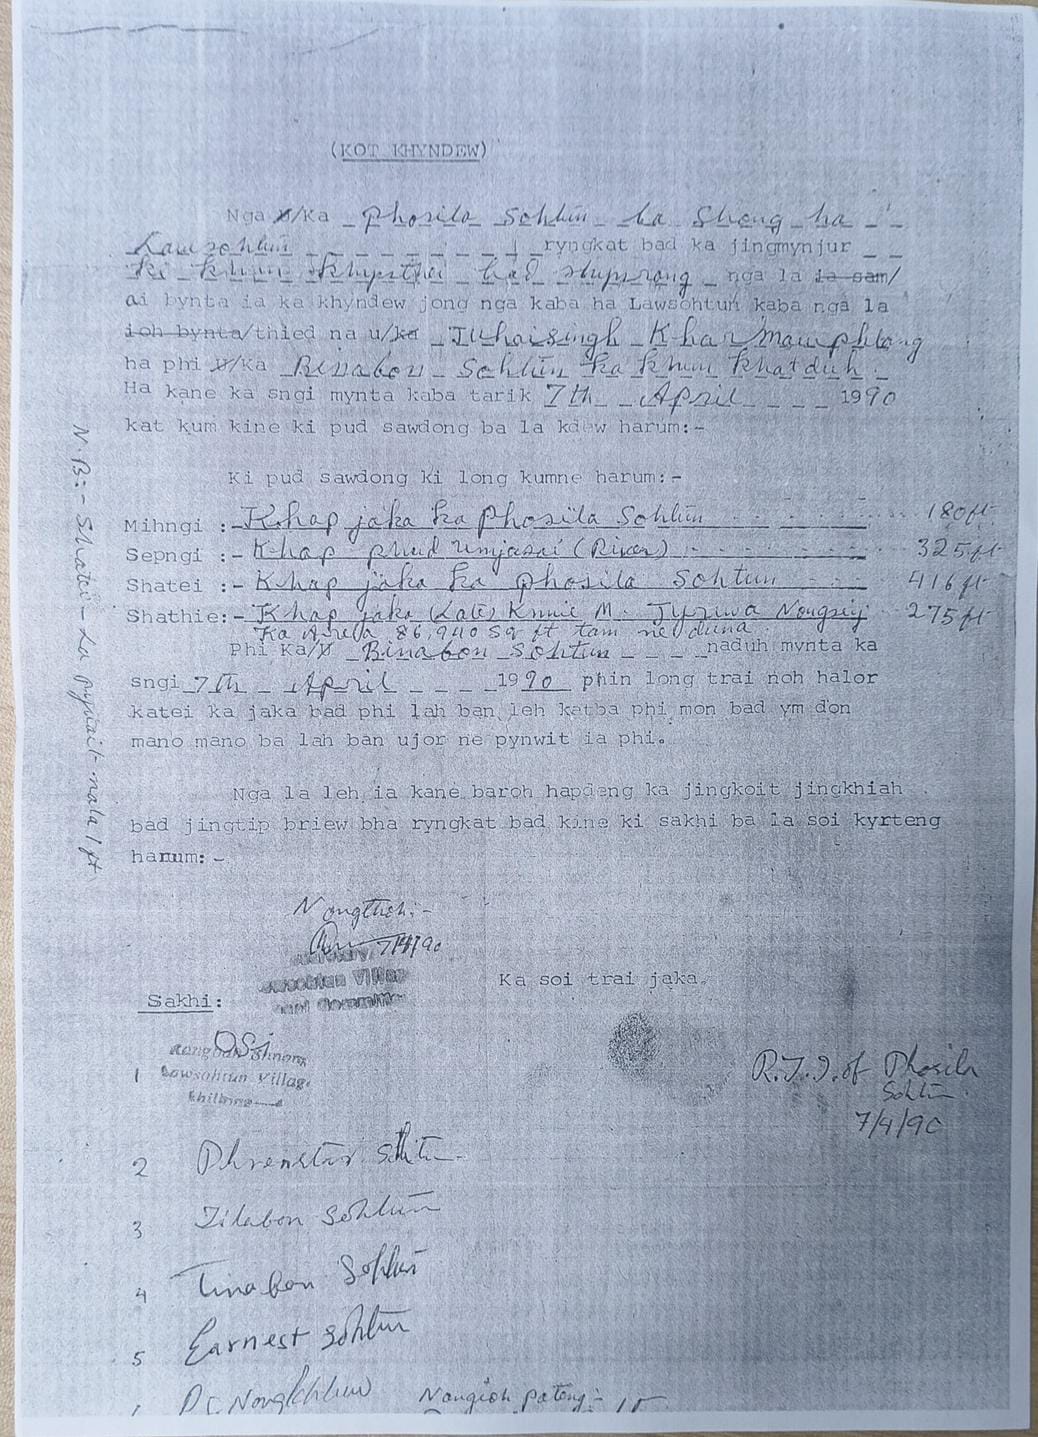 (KOT KHYNDEW)
Nga U/Ka Phosila Sohtun ba Shong ha
Lawsohtun ryngkat bad ka jingmynjur
ki khun bad shynrang nga la ia sam/
ai bynta ia ka khyndew jong nga kaba ha Lawsohtun kaba nga la
ioh bynta/thied na u/ka Juhaisingh Kharmawphlang
ha phi U/Ka Binabon Sohtun ka khun khatduh.
Ha kane ka sngi mynta kaba tarik 7th April 1990
kat kum kine ki pud sawdong ba la kdew harum:-
Ki pud sawdong ki long kumne harum:-
Mihngi :- Khap jaka ka Phosila Sohtun 180ft
Sepngi :- Khap phud Umjasai (River) 325ft
Shatei :- Khap jaka ka Phosila Sohtun 416ft
Shathie:- Khap jaka (Late) Kmie M. Tyriwa Nongsiej 275ft
Ka Area 86,940 Sq ft tam ne duna
Phi Ka/U Binabon Sohtun naduh mynta ka
sngi 7th April 1990 phin long trai noh halor
katei ka jaka bad phi lah ban leh katba phi mon bad ym don
mano mano ba lah ban ujor ne pynwit ia phi.
Nga la leh ia kane baroh hapdeng ka jingkoit jingkhiah
bad jingtip briew bha ryngkat bad kine ki sakhi ba la soi kyrteng
harum:-
N.B:- Shatei - La ft
Nongthoh:-
7/4/90
Secretary,
Lawsohtun Village
Committee
Ka soi trai jaka.
Sakhi:
Rangbah Shnong
1 Lawsohtun Village
Shillong
R.T.I. of Phosila
Sohtun
7/4/90
2 Phrenstar Sohtun
3 Tilabon Sohtun
4 Tinabon Sohtun
5 Earnest Sohtun
Nongioh pateng:-